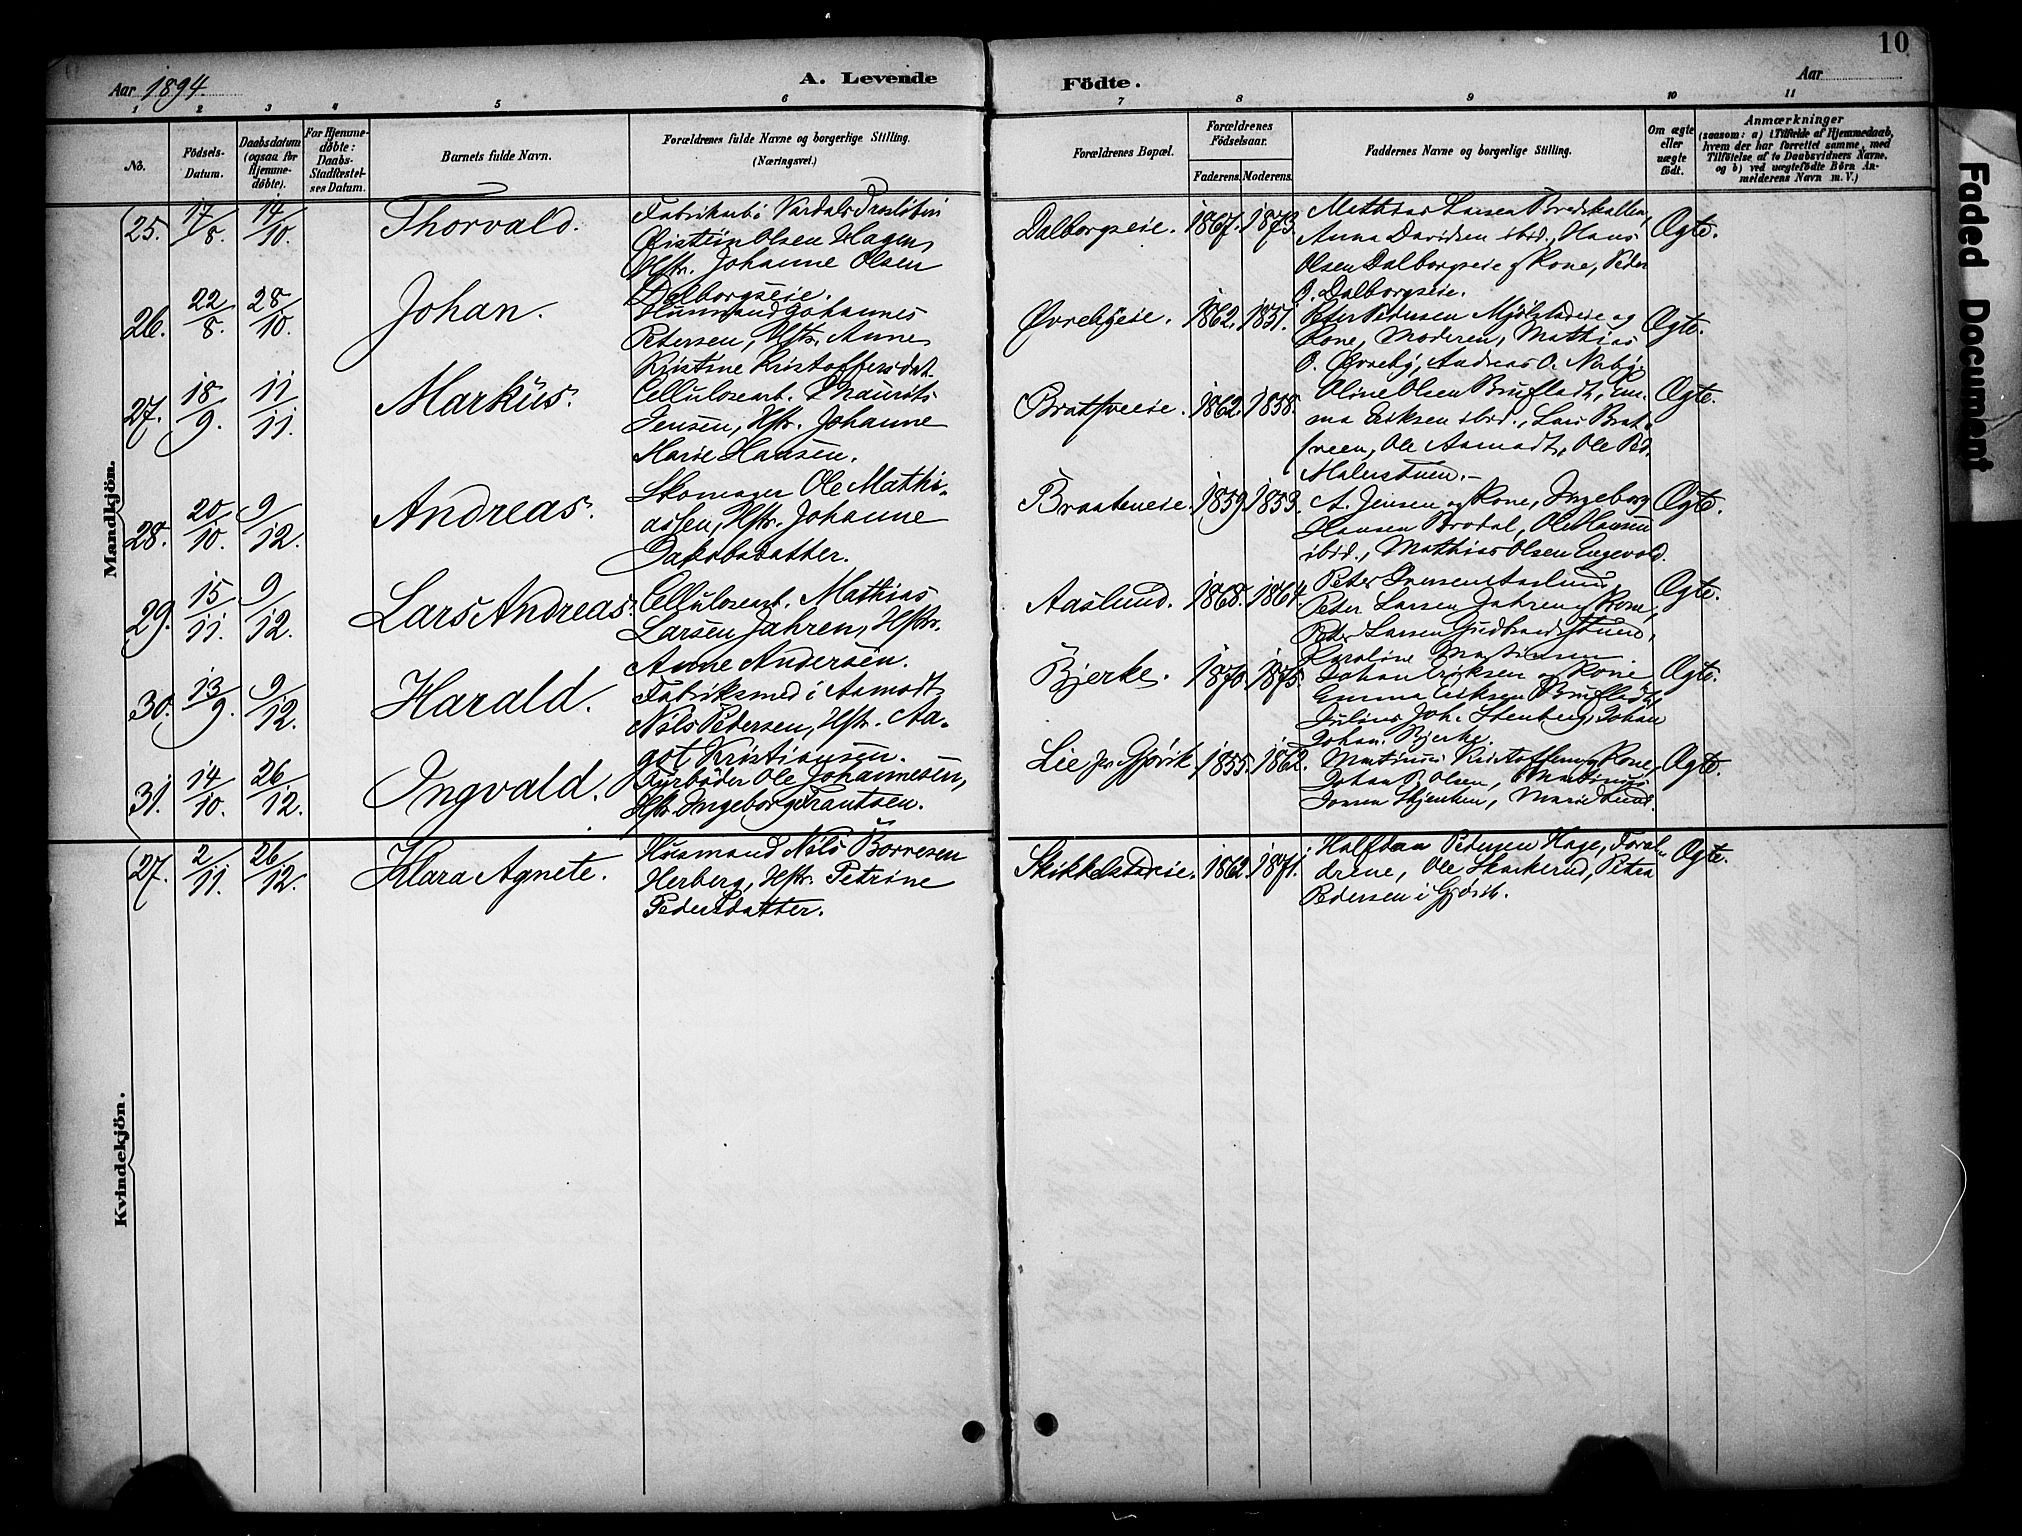 10
Aar 1894.
A. Levende
Födte.
Aar
1 2 3 4 5 6 7 8 9 10 11
No.
Födsels-
Datum.
Daabsdatum
(ogsaa for
Hjemme-
döbte).
For Hjemme-
döbte:
Daabs-
Stadfæstel-
ses Datum.
Barnets fulde Navn.
Forældrenes fulde Navne og borgerlige Stilling.
(Næringsvei.)
Forældrenes Bopæl.
Forældrenes
Födselsaar.
Faderens.
Moderens.
Faddernes Navne og borgerlige Stilling.
Om ægte
eller
uægte
födt.
Anmærkninger
(saasom: a) i Tilfælde af Hjemmedaab,
hvem der har forrettet samme, med
Tilföielse af to Daabsvidners Navne,
og b) ved uægtefödte Börn An-
melderens Navn m. V.)
Faded Document
Mandkjön.
25. 17/8. 14/10. Thorvald.
Kristian Olsen Hagen,
Hstr. Johanne Olsen
Dalborgseie.
Dalborgseie. 1867. 1873.
Mathias Larsen
Anna Davidsen ibid., Hans
Olsen Dalborgseie og Kone, Peder
O. Dalborgseie.
Ægte.
26. 22/8. 28/10. Johan.
Husmand Johannes
Petersen, Hstr. Anne
Kristine Kristoffersdat.
Øvrebyeie. 1862. 1851.
Peter Petersen Mjölstadeie og
Kone, Moderen, Mathias
O. Øvreby, Andreas O. Nerby.
Ægte.
27. 18/9. 11/11. Markus.
Cellulosearb. Maurits
Jensen, Hstr. Johanne
Marie Hansen.
Bratsveeie. 1862. 1858.
Oline Olsen Brufladt, Em-
ma Eriksen ibid., Lars Brat-
sveen, Ole Aamodt, Ole Ped.
Malerstuen.-
Ægte.
28. 20/10. 9/12. Andreas.
Skomager Ole Mathi-
assen, Hstr. Johanne
Jakobsdatter.
Braateneie. 1859. 1853.
A. Jensen og Kone, Ingeborg
Hansen Brodal, Ole Hansen
ibid., Mathias Olsen Engevold.
Ægte.
29. 15/11. 9/12. Lars Andreas.
Cellulosearb. Mathias
Larsen Jahren, Hstr.
Anne Andersen.
Aaslund. 1868. 1864.
Peter Iversen Aaslund,
Peter Larsen Jahren og Kone,
Peter Larsen Gudbrandstuen,
Karoline
Ægte.
30. 13/9. 9/12. Harald.
Fabriksmed i Aamodt
Nils Petersen, Hstr. Aa-
got Kristiansen.
Bjerke. 1870. 1875.
Johan Eriksen og Kone
Emma Eriksen Brufladt,
Julius Joh. Stenberg, Johan
Johan. Bjerke.
Ægte.
31. 14/10. 26/12. Ingvald.
Fyrböder Ole Johannesen,
Hstr. Ingeborg Frantsen.
Lie pr Gjövik 1855. 1862.
Martinus Kristoffersen og Kone,
Johan P. Olsen, Martinus
Jonsen Skjenken, Marie Lund.
Ægte.
Kvindekjön.
27. 2/11. 26/12. Klara Agnete.
Husmand Nils Börresen
Herberg, Hstr. Petrine
Pedersdatter.
Skikkelstadeie. 1862. 1871.
Halfdan Pedersen Hage, Foræl-
drene, Ole Skarkerud, Petra
Pedersen i Gjövik.
Ægte.